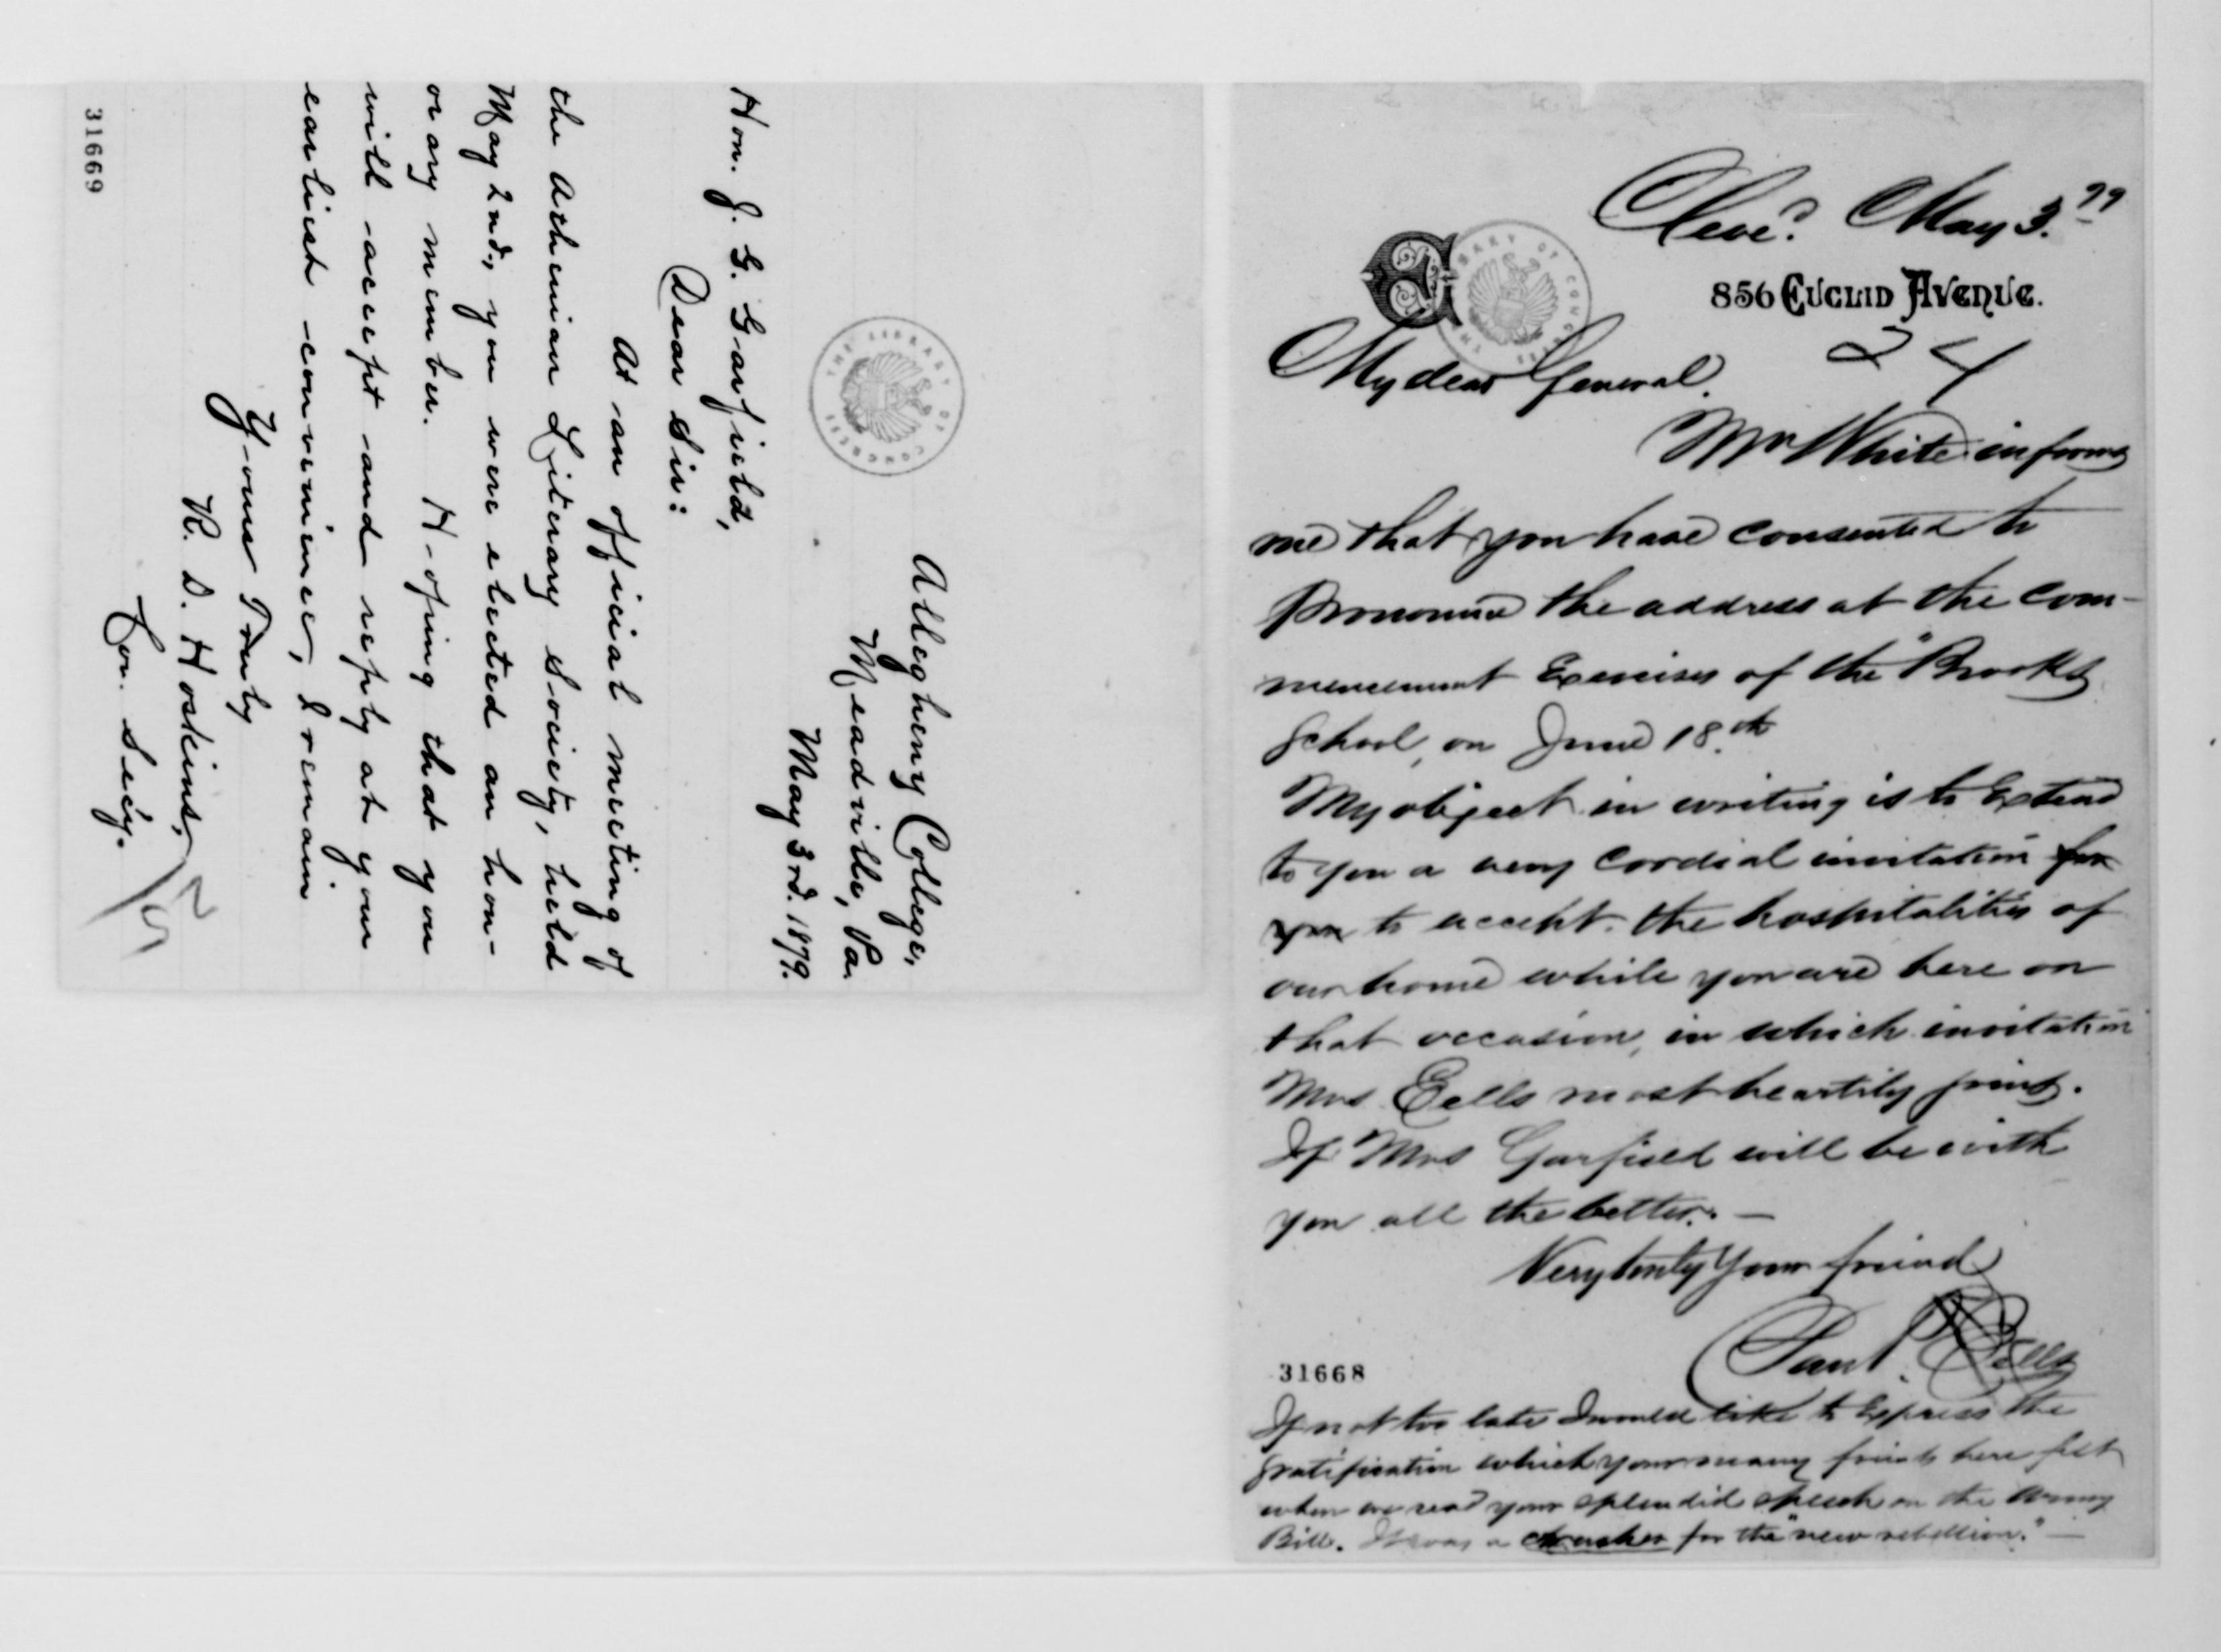 Allegheny College,
Meadville, Pa.
May 3rd. 1879.
Hon. J. G. Garfield,
Dear Sir:
At an official meeting of
the Athenian Literary Society, held
May 2nd, you were elected an hon-
orary member. Hoping that you
will accept and reply at your
earliest convenience, I remain
Yours Truly
R. D. Hoskins,
Cor. Sec'y.
31669
THE LIBRARY OF CONGRESS
Cleved. May 3. 79
856 EUCLID AVENUE.
E
THE LIBRARY OF CONGRESS
24
My dear General.
Mr White informs
me that you have consented to
pronounce the address at the com-
mencement Exercises of the "Brooks
School, on June 18th
My object in writing is to Extend
to you a very cordial invitation for
you to accept the hospitalities of
our home while you are here on
that occasion, in which invitation
Mrs Eells most heartily joins.
If Mrs Garfield will be with
you all the better. —
Very truly Your friend
Saml. Eells
31668
If not too late I would like to Express the
gratification which your many friends here felt
when we read your splendid speech on the Army
Bill. It was a crusher for the "new rebellion." —